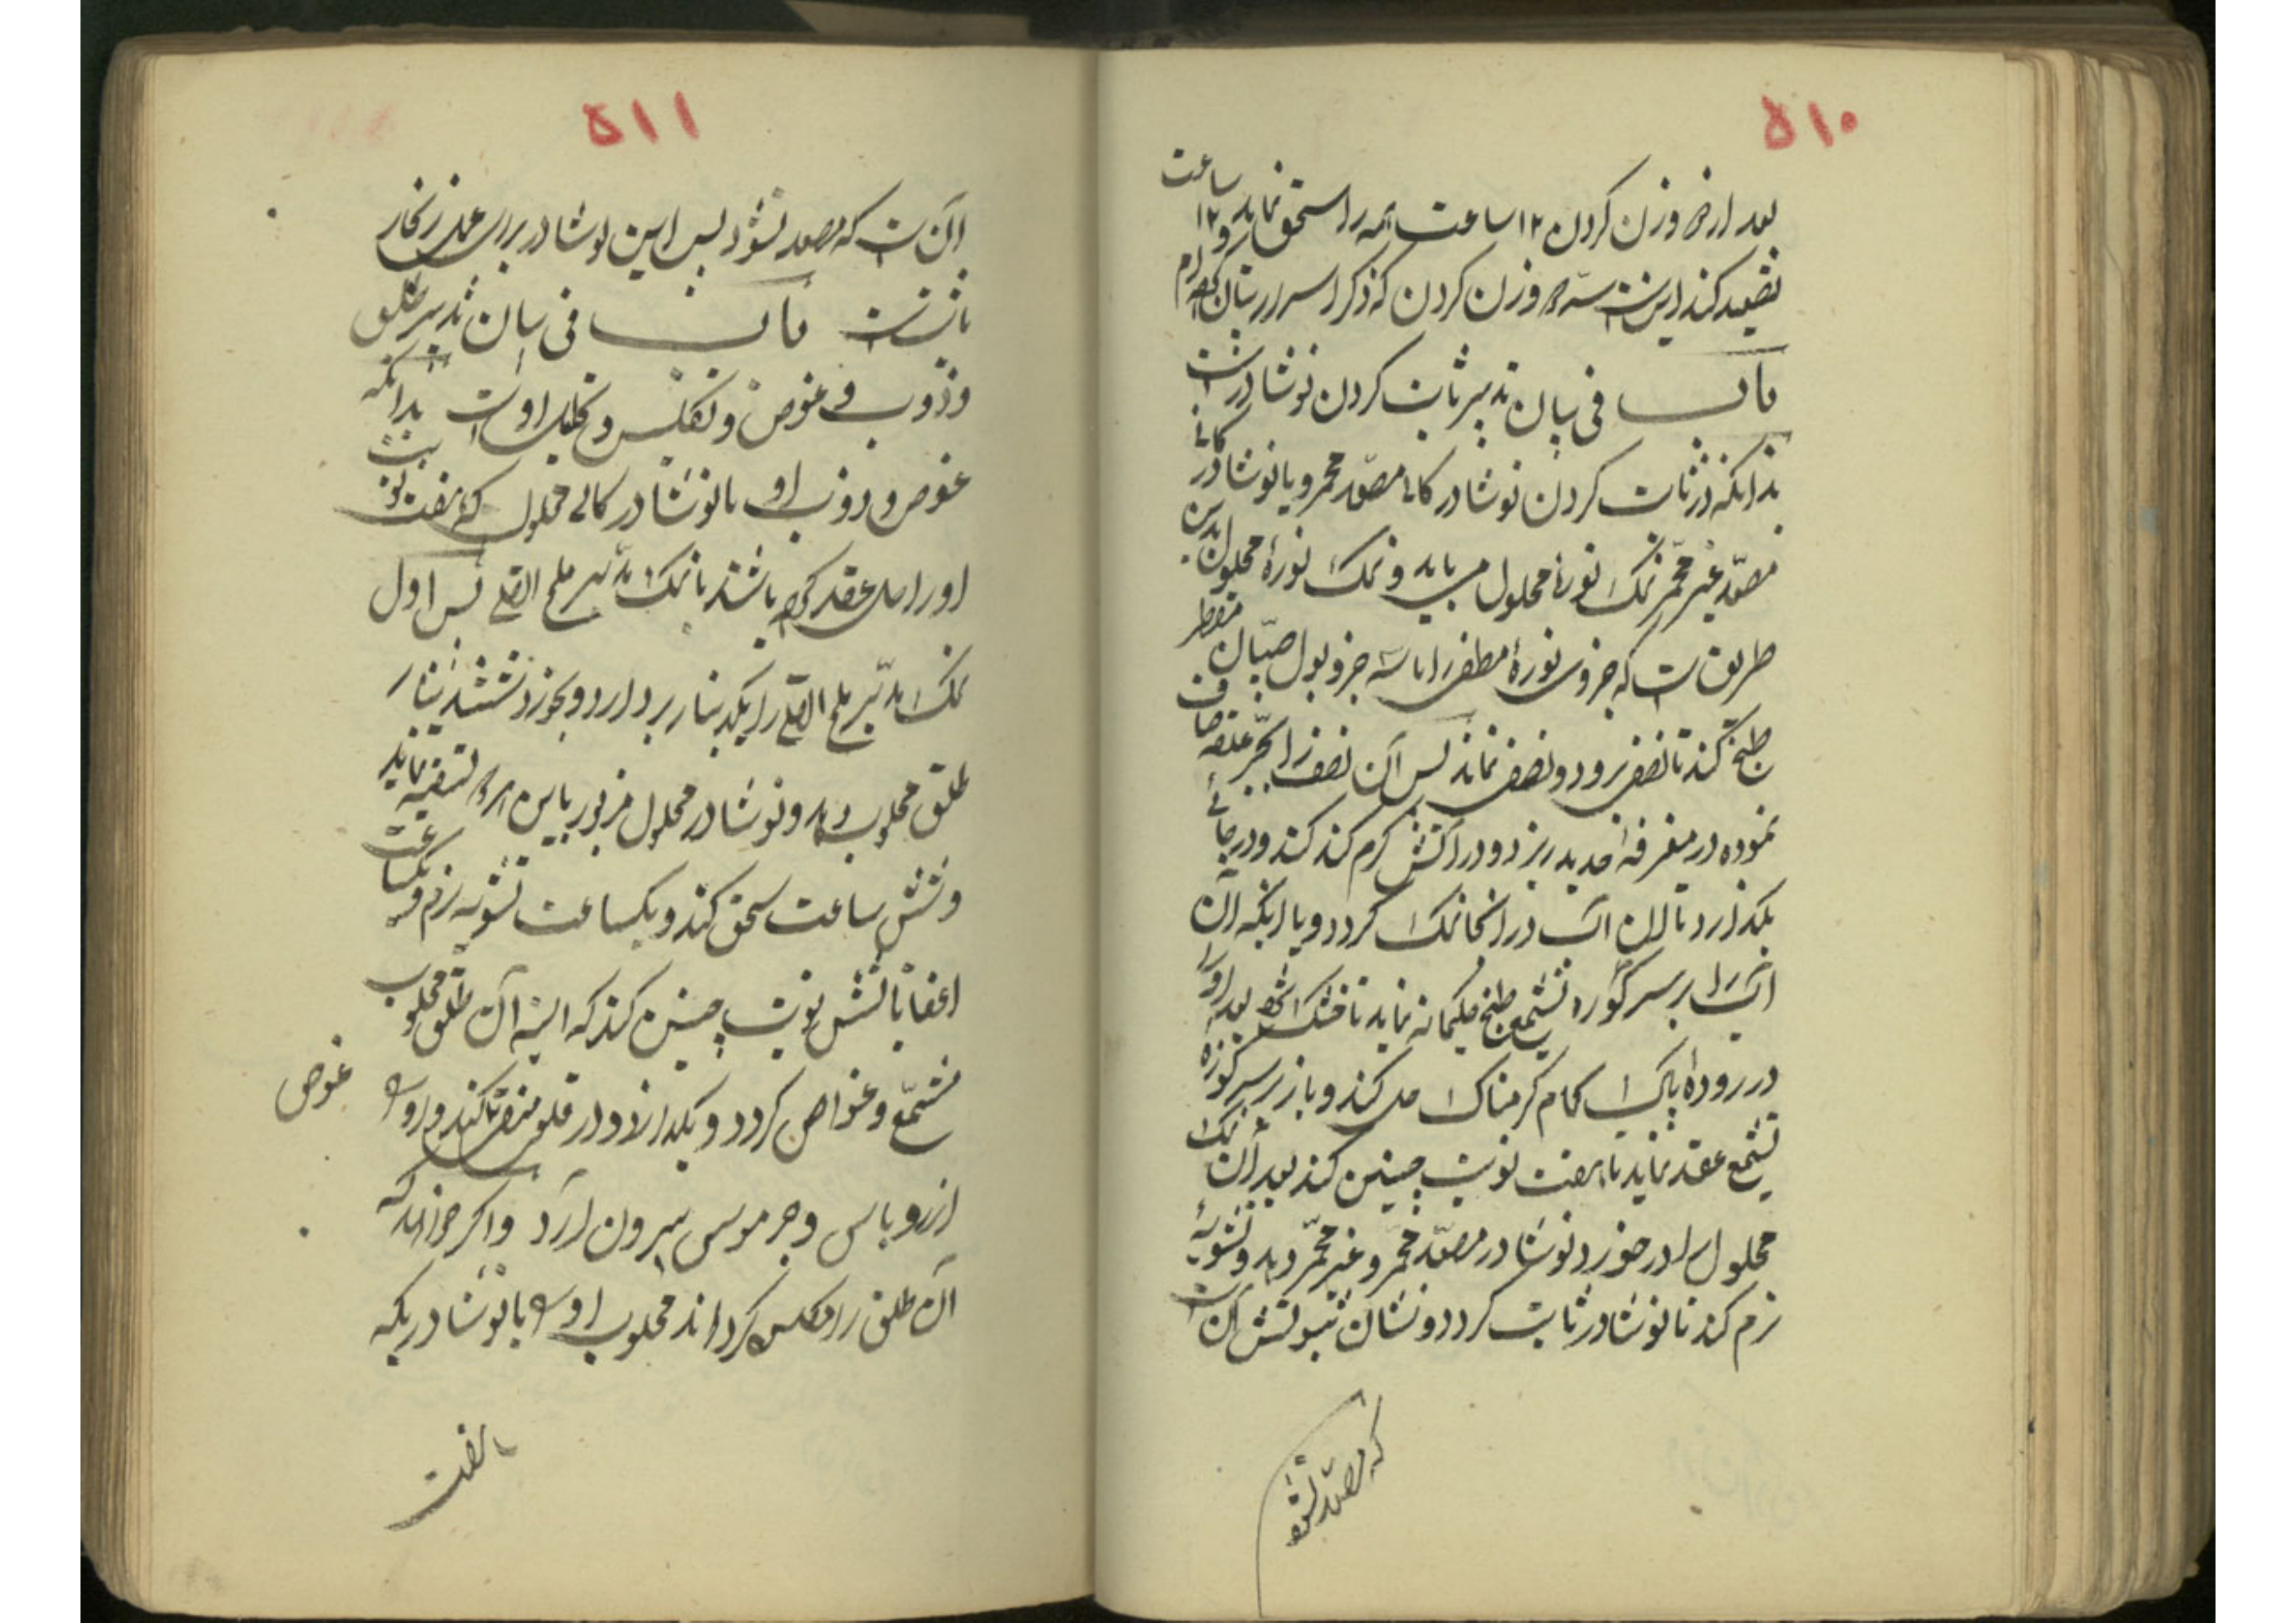 ۵۱۰
بعد از هر وزن کردن ۱۲ ساعت همه را سحق نماید و ۱۲ ساعت
تصعید کند این است سه وزن کردن که ذکر اسرار ایشان کرده‌ام
باب فی بیان تدبیر ثابت کردن نوشادر است
بدانکه در ثابت کردن نوشادر کانی مصعّد محمر و یا نوشادر کانی
مصعّد غیر محمّر نمک نورهٔ محلول میباید و نمک نورهٔ محلول بدین
طریق است که جزوی نورهٔ مطفی را با سه جزو بول صبیان مقطر
طبخ کند تا نصف برود و نصف بماند پس آن نصف را بجرّ علقه صاف
نموده در مغرفهٔ حدید ریزد و در آتش گرم کند کند و در جائی
بگذارد تا آن آب در آنجا نمک گردد و یا اینکه آن
آب را بر سر کورهٔ تشمیع طبخ حکیمانه نماید تا خشک شود بعد او را
در رودهٔ پاک حمام گرمناک حل کند و باز بر سر کوزه
تشمیع عقد نماید تا هفت نوبت چنین کند بعد آن نمک
محلول را در خورد نوشادر مصعّد محمّر و غیر محمّر دهد و تشویهٔ
نرم کند تا نوشادر ثابت گردد و نشان ثبوتش آن است
که مصعّد نشود
۵۱۱
آن است که مصعد نشود پس این نوشادر برای عمل زنجار
باشد باب فی بیان تدبیر طلق
و ذوب و غوص و تکلیس و تحلیب او است بدانکه
غوص و ذوب او با نوشادر کانی محلول که هفت نوبت
او را حل و عقد کرده باشند با نمک مدبّر ملح القلی پس اول
نمک مدبّر ملح القلی را یکدینار بردارد و بخورد شش دینار
طلق محلوب دهد و نوشادر محلول مزبور باین هر دو تسقیه نماید
و شش ساعت سحق کند و یکساعت تشویه نرم و یکساعت
اغفا با تشش نوبت چنین کند که البته آن طلق محلوب
مشمّع و غواص گردد و بگدازد و در قلعی منقّا کند و او را
غوص
از روباس و حر موسی بیرون آرد و اگر خواهد که
آن طلق را مکلس گرداند محلوب او را با نوشادر یکه
هفت